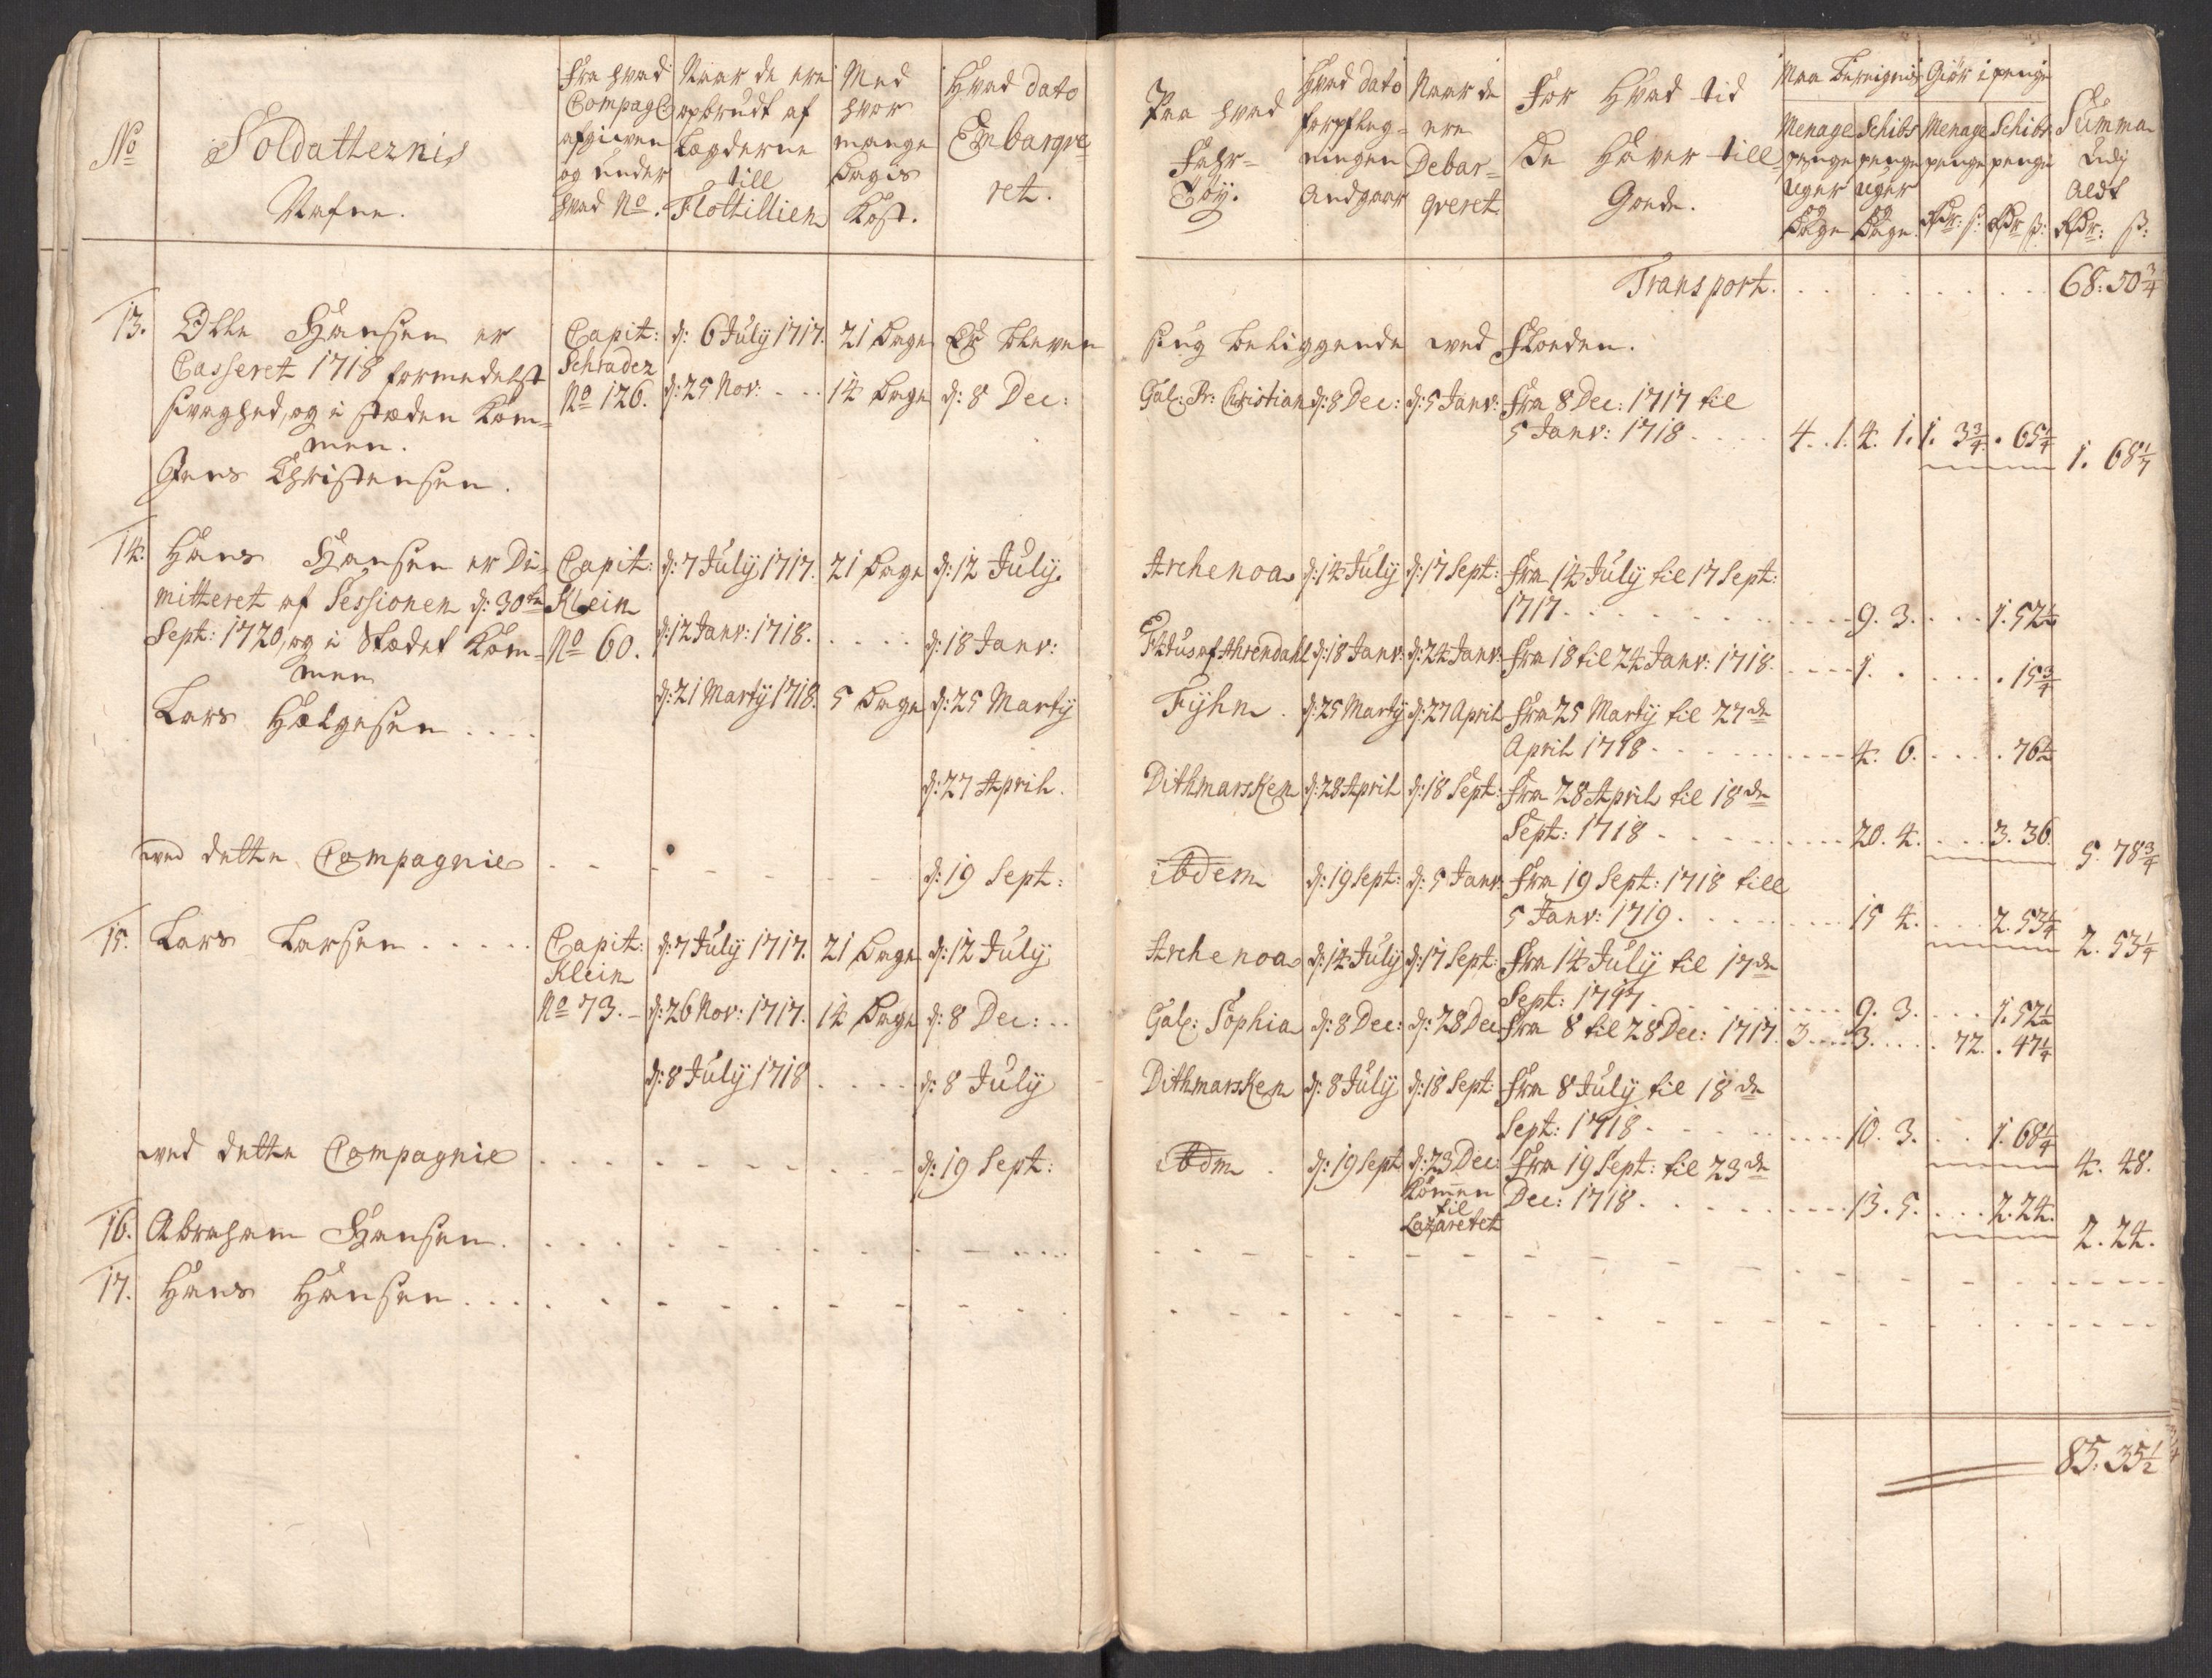 No
Soldatternis
Nafne.
Fra hvad
Compag
afgieven
og under
hvad No.
Naar de ere
opbrudt af
Lægderne
till
Flottillien
Med
hvor
mange
Dagis
Kost.
Hvad dato
Embarqve-
ret.
Paa hvad
Fahr=
Töÿ.
Hvad dato
forpfleg=
ningen
Andgaar
Naar de
ere
Debar=
qveret.
For Hvad tid
De Haver till=
Gode.
Menage
penge
uger
og
Dage
Schibs
penge
uger
og
Dage.
Giör i penge
Menage
penge
Rdr: ß:
Schibs
penge
Rdr ß:
Summa
Udj
Aldt
Rdr: ß:
Transport. . . . . . . . . 68: 50 3/4
13. Olle Hansen er
Casseret 1718 formedelst
svaghed, og i stæden Kom=
men.
Jens Christensen.
Capit:
Schrader
No 126.
d: 6 July 1717. 21 Dage Er bleven
syg beliggende ved Floeden.
d: 25 Nov: . . . 14 Dage d: 8 Dec:
Gal: Pr: Christian d: 8 Dec: d: 5 Janv: Fra 8 Dec: 1717 til
5 Janv: 1718 . . . . 4. 1. 4. 1. 1. 3 3/4 . 65 1/4
1. 68 1/7
14. Hans Hansen er Di-
mitteret af Sessionen d: 30te
Sept: 1720, og i Stædet Kom=
men
Lars Hælgesen . . . .
Capit:
Klein
No 60.
d: 7 July 1717. 21 Dage d: 12 July.
Archenoa d: 14 July d: 17 Sept: Fra 14 July til 17 Sept:
1717 . . . . . . 9. 3. . . . 1. 52 1/2
d: 12 Janv: 1718. . . . . d: 18 Janv:
af Ahrendahl d: 18 Janv: d: 24 Janv: Fra 18 til 24 Janv: 1718. . . . . 1. . . . . 15 3/4
d: 21 Martÿ 1718. 5 Dage d: 25 Martÿ
Fÿhn . d: 25 Martÿ d: 27 April Fra 25 Martÿ til 27de
April 1718 . . . . . . 4. 6. . . . . 76 1/2
d: 27 April.
Dithmarsken d: 28 April d: 18 Sept: Fra 28 April til 18de
Sept: 1718 . . . . . . 20. 4. . . . 3. 36.
5. 78 3/4
ved dette Compagnie . . . . . . . d: 19 Sept:
Idem d: 19 Sept: d: 5 Janv: Fra 19 Sept: 1718 till
5 Janv: 1719. . . . . . 15 4. . . . 2. 53 1/4
2. 53 1/4
15. Lars Larsen . . . . .
Capit:
Klein
No 73. -
d: 7 July 1717. 21 Dage d: 12 July
Archenoa d: 14 July d: 17 Sept: Fra 14 July til 17de
Sept: 1717 . . . . . . 9. 3. . . . 1. 52 1/2
d: 26 Nov: 1717. 14 Dage d: 8 Dec: . .
Gal: Sophia d: 8 Dec: d: 28 Dec Fra 8 til 28 Dec: 1717. 3 . . . 3. . . . 72. . 47 1/4
d: 8 July 1718 . . . . d: 8 July
Dithmarsken d: 8 July d: 18 Sept: Fra 8 July til 18de
Sept: 1718 . . . . . . 10. 3. . . 1. 68 1/4
4. 48.
ved dette Compagnie . . . . . . . d: 19 Sept:
Idm . d: 19 Sept d: 23 Dec: Fra 19 Sept: til 23de
Kommen
til
Lazaretet
Dec: 1718. . . . . . 13. 5. . . . 2. 24.
2. 24.
16. Abraham Hansen. . . . . . . . . . . . . .
17. Hans Hansen . . . . . . . . . . . . . .
85: 35 1/2